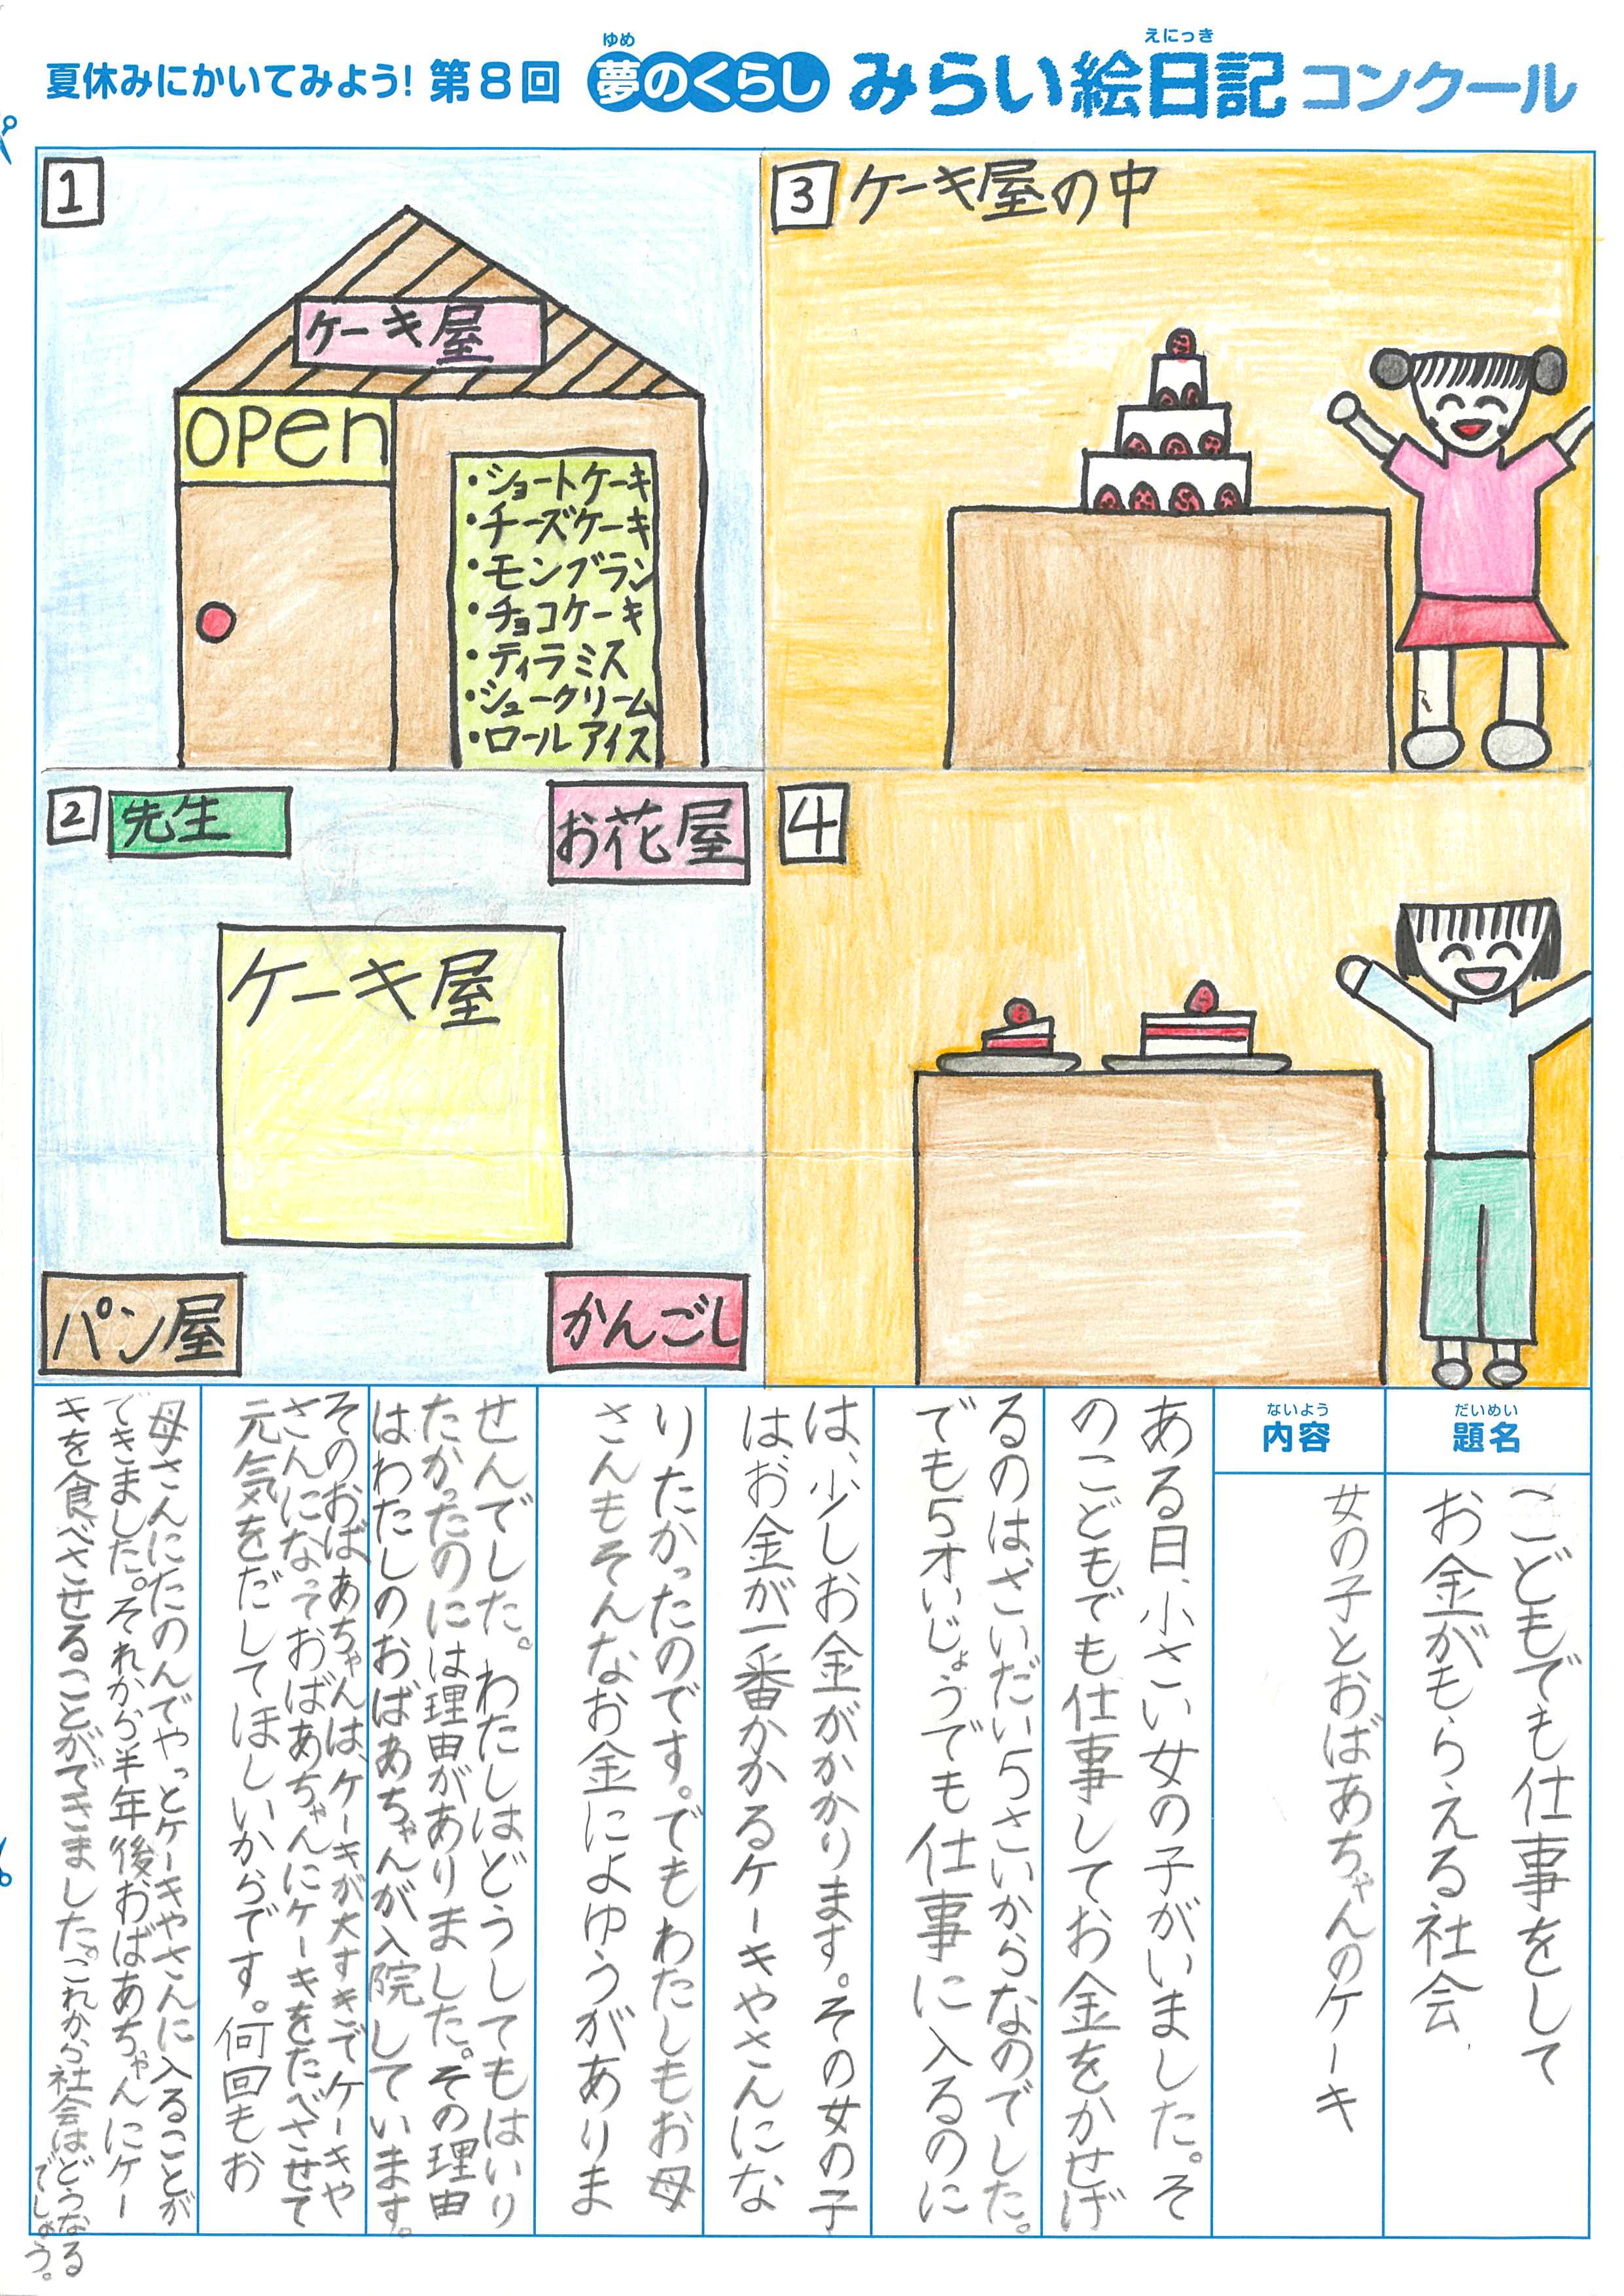 ゆめ
えにっき
夏休みにかいてみよう! 第8回 夢のくらし みらい絵日記 コンクール
1
ケーキ屋
open
・ショートケーキ
・チーズケーキ
・モンブラン
・チョコケーキ
・ティラミス
・シュークリーム
・ロールアイス
2
先生
お花屋
ケーキ屋
パン屋
かんごし
3
ケーキ屋の中
4
だいめい
題名
こどもでも仕事をして
お金がもらえる社会
ないよう
内容
女の子とおばあちゃんのケーキ
ある日、小さい女の子がいました。そ
のこどもでも仕事してお金をかせげ
るのはさいだい5さいからなのでした。
でも5才いじょうでも仕事に入るのに
は、少しお金がかかります。その女の子
は、お金が一番かかるケーキやさんにな
りたかったのです。でもわたしもお母
さんもそんなお金によゆうがありま
せんでした。わたしはどうしてもはいり
たかったのには理由がありました。その理由
はわたしのおばあちゃんが入院しています。
そのおばあちゃんは、ケーキが大すきでケーキや
さんになっておばあちゃんにケーキをたべさせて
元気をだしてほしいからです。何回もお
母さんにたのんでやっとケーキやさんに入ることが
できました。それから半年後おばあちゃんにケー
キを食べさせることができました。これから社会はどうなる
でしょう。